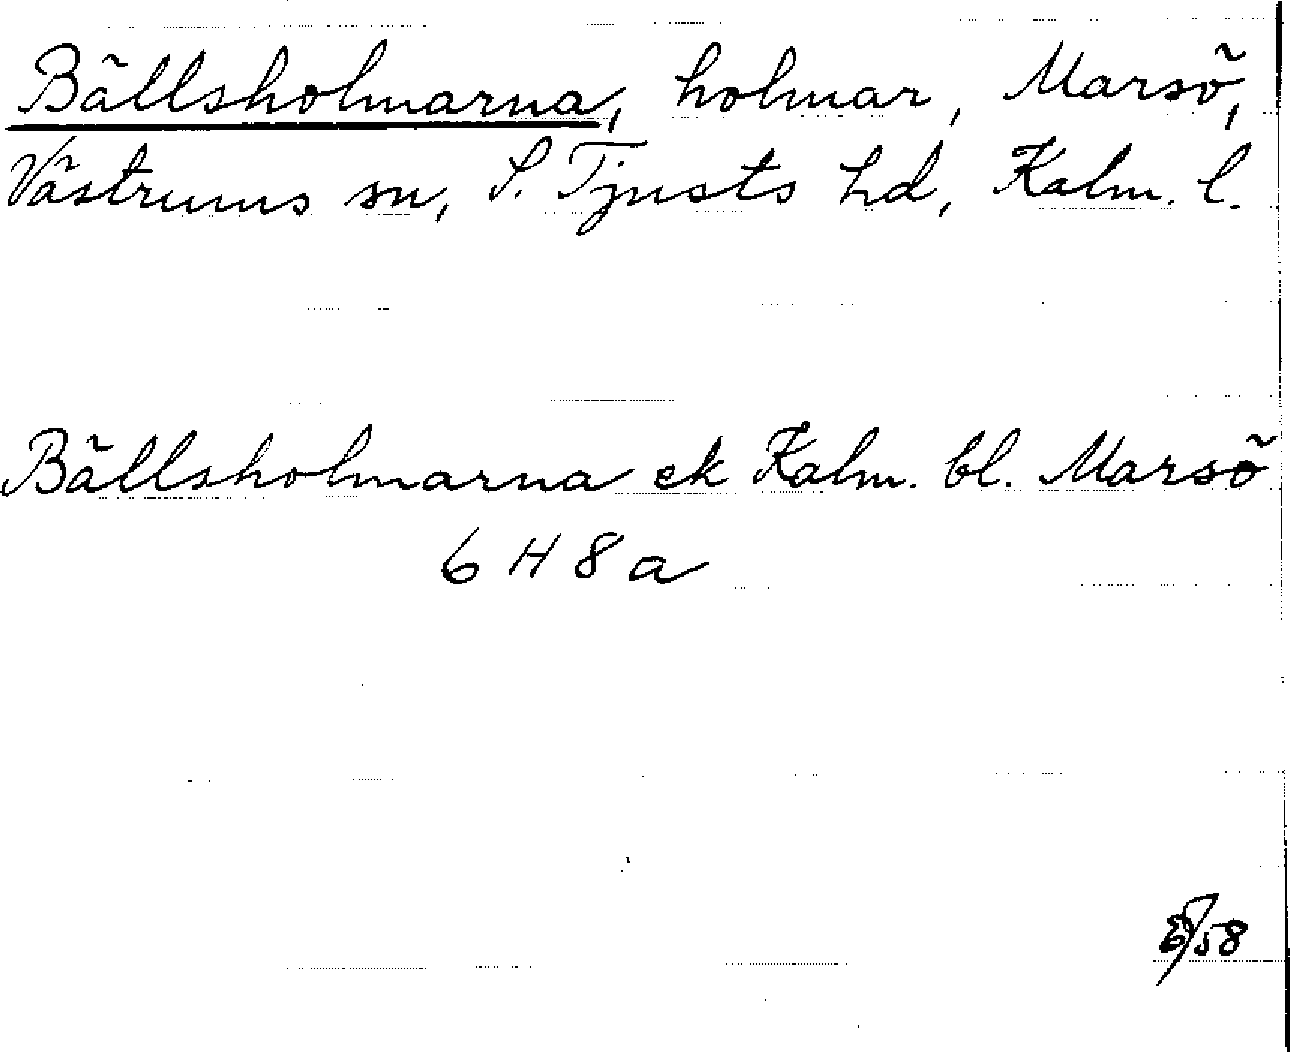 Bällsholmarna, holmar, Marsö,
Västrums sn, S. Tjusts hd, Kalm. l.
Bällsholmarna ek Kalm. bl. Marsö
6 H 8 a
58